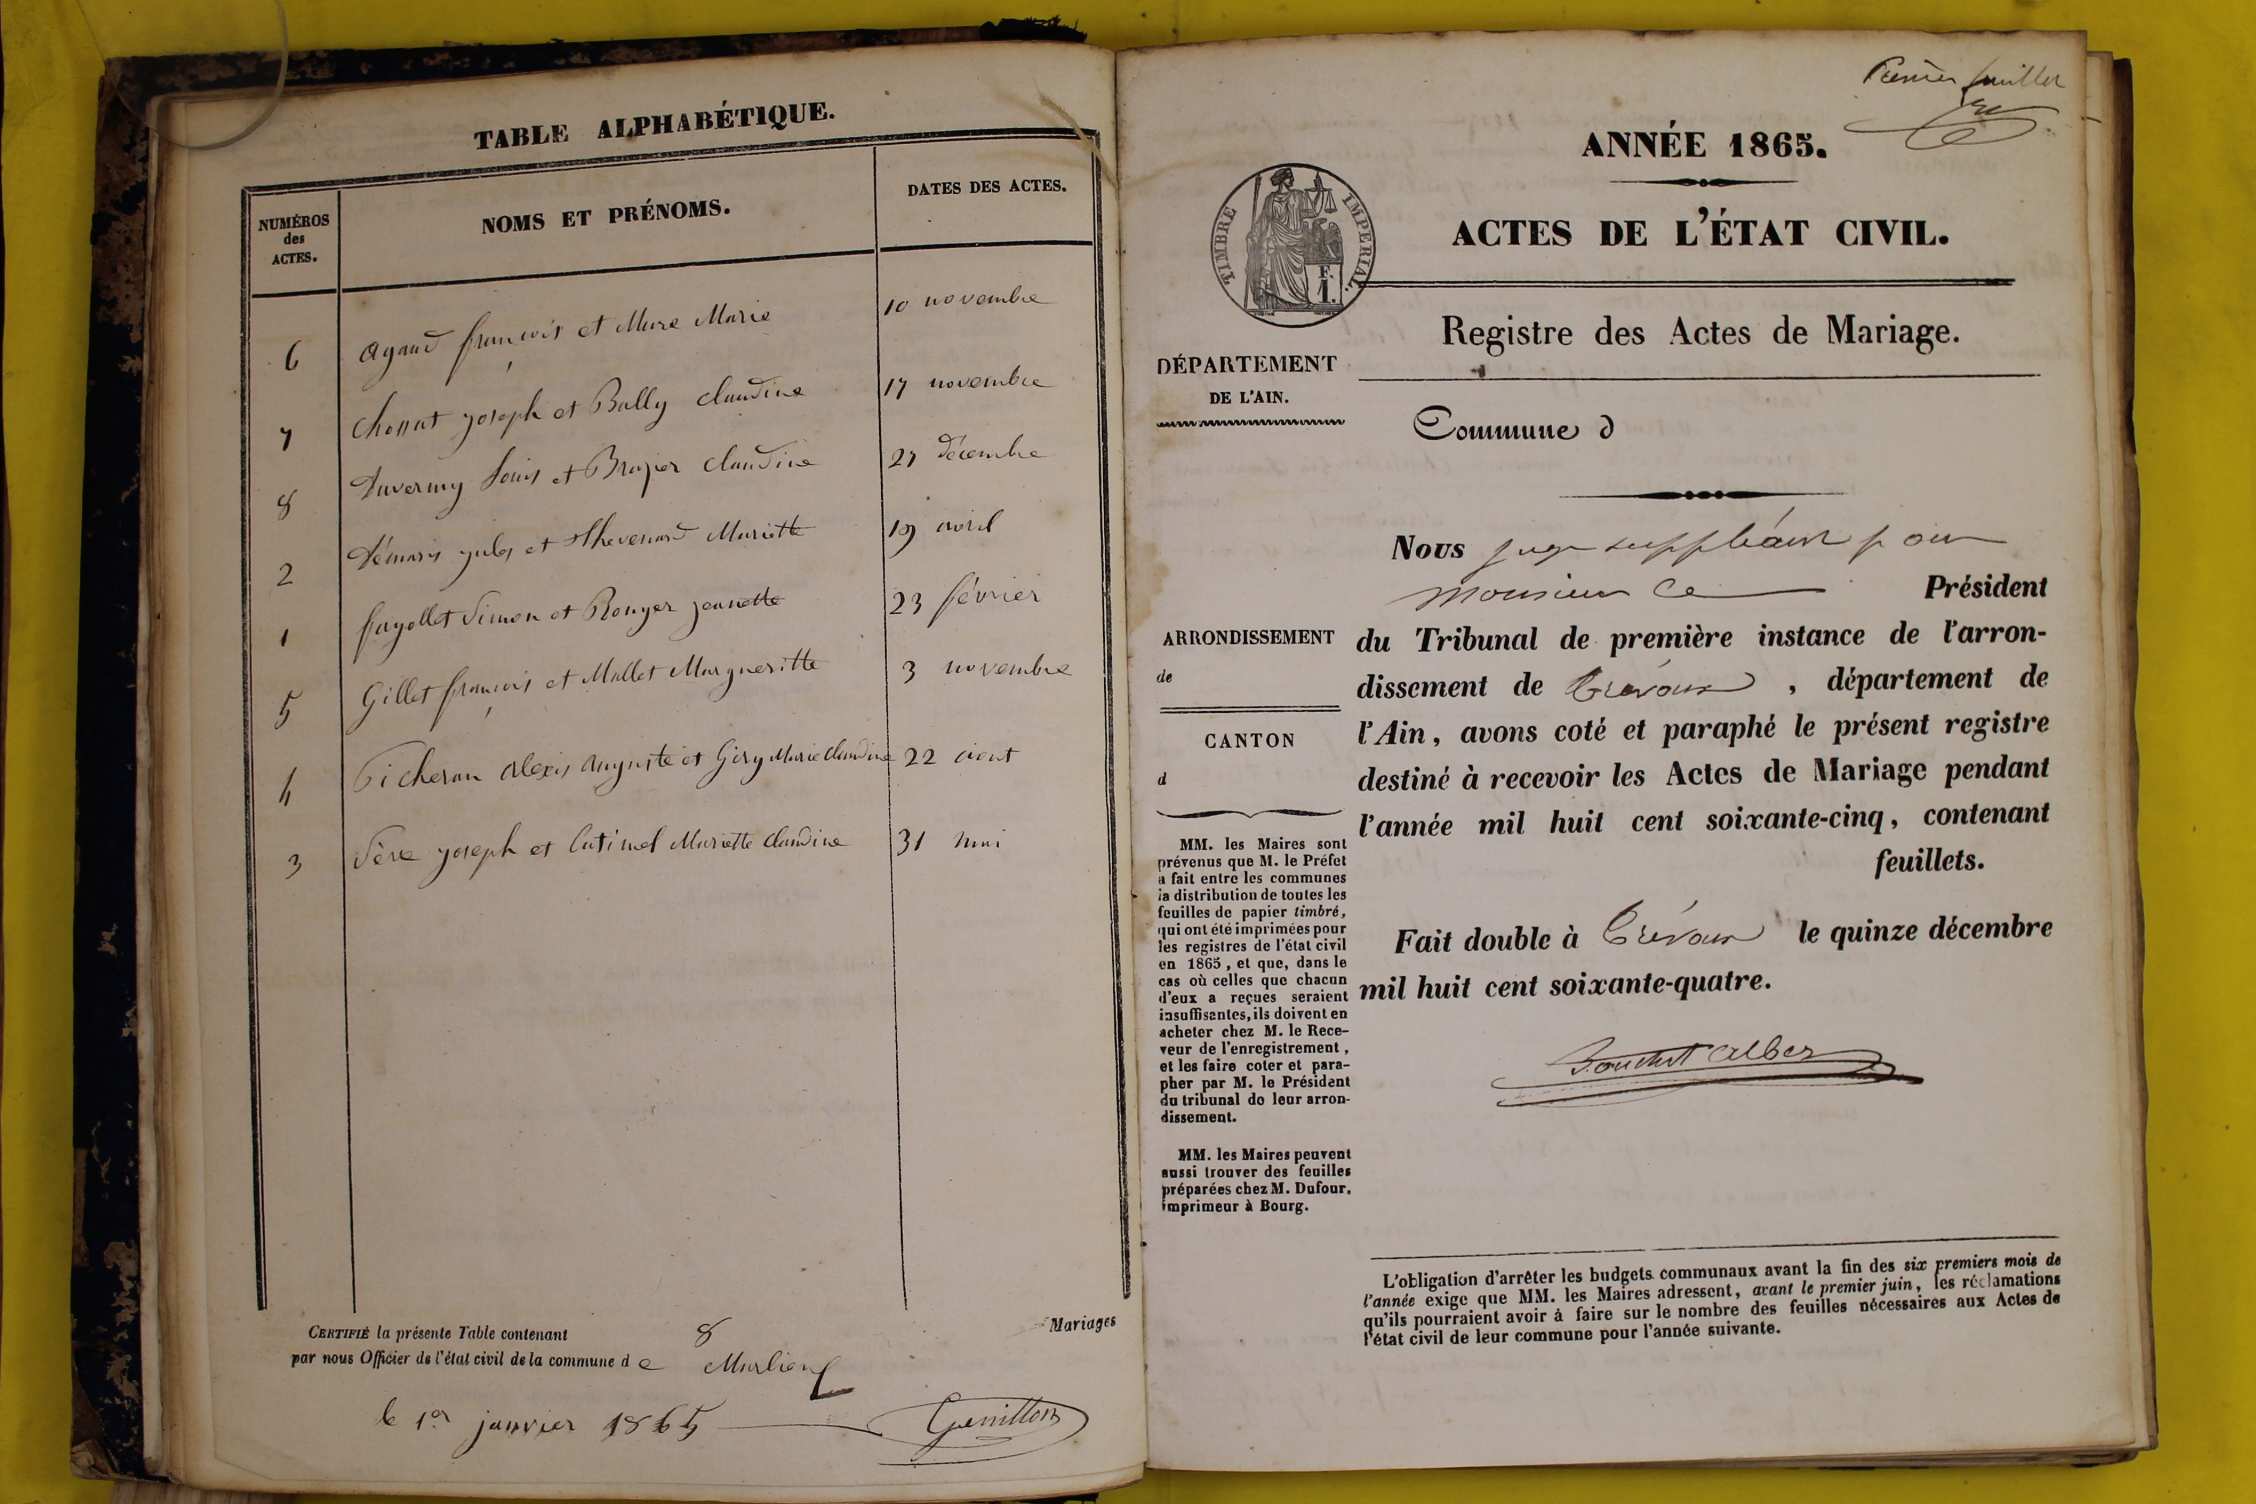 TABLE ALPHABÉTIQUE.
NUMÉROS
des
ACTES.
NOMS ET PRÉNOMS.
DATES DES ACTES.
6 Agaud françois et Mure Marie 10 novembre
7 Chossat joseph et Bally Claudine 17 novembre
8 Duvernay Louis et Brazier Claudine 27 décembre
2 Démaris jules et Thevenard Mariette 19 avril
1 fayollet Simon et Rouyer jeannette 23 février
5 Gillet françois et Mallet Margueritte 3 novembre
4 Picheran Alexis Auguste et Giry Marie Claudine 22 aout
3 Sève joseph et Catimel Mariette Claudine 31 mai
CERTIFIÉ la présente Table contenant 8 Mariages
par nous Officier de l'état civil de la commune d e Marlieux
le 1er janvier 1865
Genillon
Premier feuillet
ANNÉE 1865.
TIMBRE IMPERIAL.
F.
1.
ACTES DE L'ÉTAT CIVIL.
Registre des Actes de Mariage.
DÉPARTEMENT
DE L'AIN.
Commune d
ARRONDISSEMENT
de
CANTON
d
MM. les Maires sont
prévenus que M. le Préfet
a fait entre les communes
la distribution de toutes les
feuilles de papier timbré,
qui ont été imprimées pour
les registres de l'état civil
en 1865, et que, dans le
cas où celles que chacun
d'eux a reçues seraient
insuffisantes, ils doivent en
acheter chez M. le Rece-
veur de l'enregistrement,
et les faire coter et para-
pher par M. le Président
du tribunal de leur arron-
dissement.
MM. les Maires peuvent
aussi trouver des feuilles
préparées chez M. Dufour,
imprimeur à Bourg.
Nous juge suppléant pour
monsieur le Président
du Tribunal de première instance de l'arron-
dissement de Trévoux, département de
l'Ain, avons coté et paraphé le présent registre
destiné à recevoir les Actes de Mariage pendant
l'année mil huit cent soixante-cinq, contenant
feuillets.
Fait double à Trévoux le quinze décembre
mil huit cent soixante-quatre.
L'obligation d'arrêter les budgets communaux avant la fin des six premiers mois de
l'année exige que MM. les Maires adressent, avant le premier juin, les réclamations
qu'ils pourraient avoir à faire sur le nombre des feuilles nécessaires aux Actes de
l'état civil de leur commune pour l'année suivante.